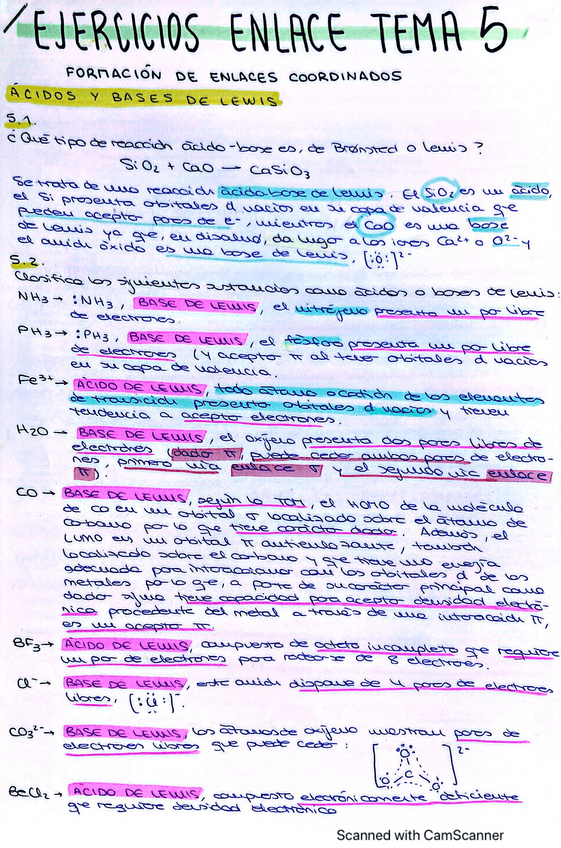 EJERCICIOS ENLACE TEMA 5
FORMACIÓN DE ENLACES COORDINADOS
ÁCIDOS Y BASES DE LEWIS
5.1.
¿Qué tipo de reacción ácido-base es, de Brønsted o Lewis?
SiO2 + CaO → CaSiO3
Se trata de una reacción ácido base de Lewis. El SiO2 es un ácido,
el Si presenta orbitales d vacíos en su capa de valencia que
pueden aceptar pares de e-, mientras el CaO es una base
de Lewis ya que, en disolución, da lugar a los iones Ca2+ o O2- y
el anión óxido es una base de Lewis, [:Ö:]2-
5.2.
Clasifica las siguientes sustancias como ácidos o bases de Lewis:
NH3 → :NH3, BASE DE LEWIS, el nitrógeno presenta un par libre
de electrones.
PH3 → :PH3, BASE DE LEWIS, el fósforo presenta un par libre
de electrones (y acepta π al tener orbitales d vacíos
en su capa de valencia.
Fe3+ → ÁCIDO DE LEWIS, todo átomo o catión de los elementos
de transición presenta orbitales d vacíos y tienen
tendencia a aceptar electrones.
H2O → BASE DE LEWIS, el oxíjeno presenta dos pares libres de
electrones (dador π, puede ceder ambos pares de electro-
nes, primero vía enlace σ y el segundo vía enlace
π).
CO → BASE DE LEWIS, según la TOM, el HOMO de la molécula
de CO en un orbital σ localizado sobre el átomo de
carbono por lo que tiene carácter dador. Además, el
LUMO es un orbital π antienlazante, también
localizado sobre el carbono y que tiene una energía
adecuada para interaccionar con los orbitales d de los
metales por lo que, a parte de su carácter principal como
dador σ, tiene capacidad para aceptar densidad electró-
nica procedente del metal a través de una interacción π,
es un aceptor π.
BF3 → ÁCIDO DE LEWIS, compuesto de octeto incompleto que requiere
un par de electrones para rodearse de 8 electrones.
Cl- → BASE DE LEWIS, este anión dispone de 4 pares de electrones
libres,
CO3 2- → BASE DE LEWIS, los átomos de oxígeno muestran pares de
electrones libres que puede ceder:
BeCl2 → ÁCIDO DE LEWIS, compuesto electrónicamente deficiente
que requiere densidad electrónica
Scanned with CamScanner